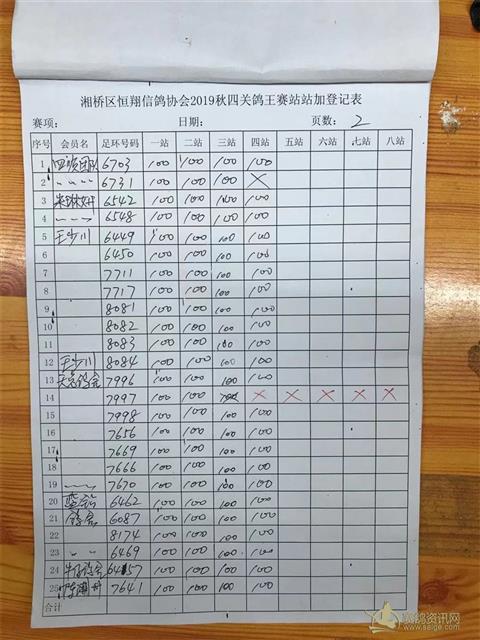 湘桥区恒翔信鸽协会2019秋四关鸽王赛站站加登记表
赛项： 日期： 页数：2
序号 会员名 足环号码 一站 二站 三站 四站 五站 六站 七站 八站
1 6703 100 100 100 100
2 〃 〃 〃 6731 100 100 100 ×
3 6542 100 100 100 100
4 6548 100 100 100 100
5 王少川 6449 100 100 100 100
6 6450 100 100 100 100
7 7711 100 100 100 100
8 7717 100 100 100 100
9 8081 100 100 100 100
10 8082 100 100 100 100
11 8083 100 100 100 100
12 王少川 8084 100 100 100 100
13 7996 100 100 100 100
14 7997 100 100 × × × × ×
15 7998 100 100 100 100
16 7656 100 100 100 100
17 7669 100 100 100 100
18 7666 100 100 100 100
19 7670 100 100 100 100
20 6462 100 100 100 100
21 6087 100 100 100 100
22 8174 100 100 100 100
23 〃 〃 6469 100 100 100 100
24 6457 100 100 100 100
25 7641 100 100 100 100
合计
赛鸽资讯网
www.saige.com